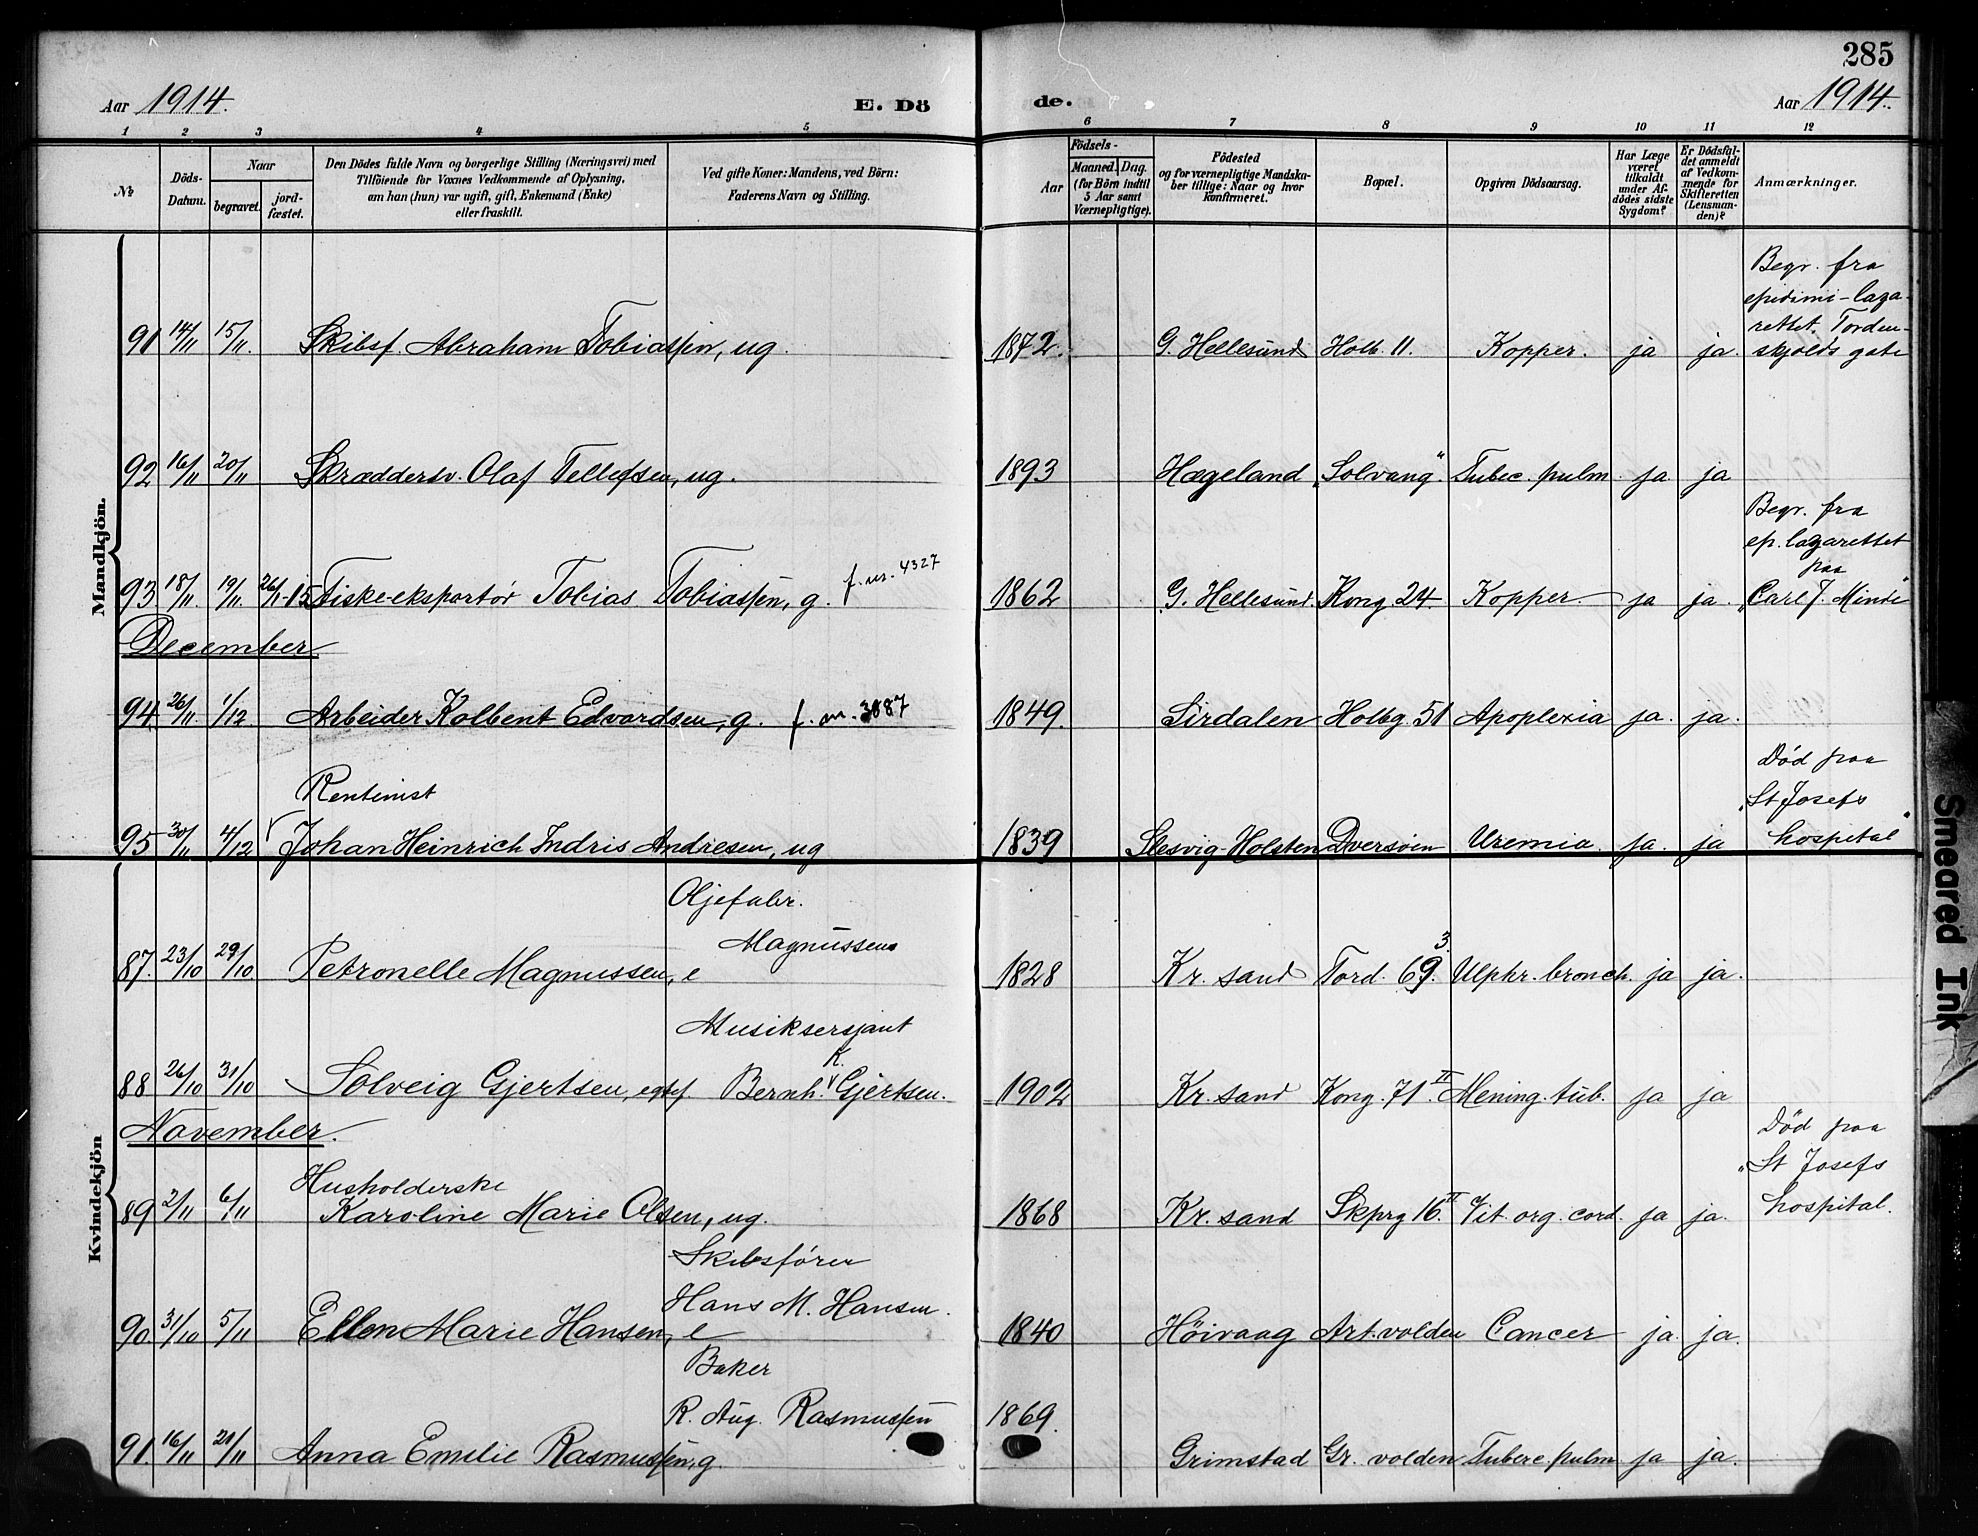 285
Aar 1914. E. Dö de. Aar 1914.
1 2 3 4 5 6 7 8 9 10 11 12
No Döds-Datum. Naar begravet. jord-fæstet. Den Dödes fulde Navn og borgerlige Stilling (Næringsvei) med Tilföiende for Voxnes Vedkommende af Oplysning, om han (hun) var ugift, gift, Enkemand (Enke) eller fraskilt. Ved gifte Koner: Mandens, ved Börn: Faderens Navn og Stilling. Födsels- Aar Maaned. Dag. (for Börn indtil 5 Aar samt Værnepligtige). Födested og for værnepligtige Mandskaber tillige: Naar og hvor konfirmeret. Bopæl. Opgiven Dödsaarsag. Har Læge været tilkaldt under Afdödes sidste Sygdom? Er Dödsfaldet anmeldt af Vedkommende for Skifteretten (Lensmanden)? Anmærkninger.
Mandkjön.
91 14/11 15/11. Skibsf. Abraham Tobiassen, ug. 1872. G. Hellesund Holb. 11. Kopper. ja ja. Begr. fra epidimi-lazarettet. Tordenskjolds gate
92 16/11 20/11 Skræddersv. Olaf Tellefsen, ug. 1893 Hægeland "Solvang". Tubec. pulm. ja ja
93 18/11. 19/11. 26/1-15 Fiskeeksportör Tobias Tobiassen, g. f. nr. 4327 1862 G. Hellesund. Kong 24 Kopper. ja ja. Begr. fra ep. lazarettet paa "Carl J. Minde"
December
94. 26/11. 1/12 Arbeider Kolbent Edvardsen, g. f. nr. 3887 1849. Sirdalen Holbg. 51 Apoplexia ja. ja.
Rentenist
95 30/11 4/12 Johan Heinrich Indris Andresen, ug 1839 Slesvig-Holsten Dversöien Uremia. ja. ja Död paa "St Josefs hospital"
Kvindekjön
Oljefabr.
Magnussens
87. 23/10 29/10 Petronelle Magnussen, e 1828 Kr. sand Tord. 69. 3. bronch. ja ja.
Musiksersjant
88 26/10 31/10 Solveig Gjertsen, egtef. Bernh. K. Gjertsen. 1902 Kr. sand Kong. 71 II Mening. tub. ja ja
November.
Husholderske
89 2/11 6/11 Karoline Marie Olsen, ug. 1868 Kr. sand Skprg 16. II Vit. org. cord. ja ja. Död paa "St Josefs hospital.
Skibsförer
Hans M. Hansen.
90 31/10 5/11 Ellen Marie Hansen, e 1840 Höivaag Art. volden Cancer ja. ja.
Baker
R. Aug. Rasmussen 1869.
91. 16/11 21/11 Anna Emilie Rasmussen, g. Grimstad Gr. volden Tuberc. pulm ja ja.
Smeared Ink